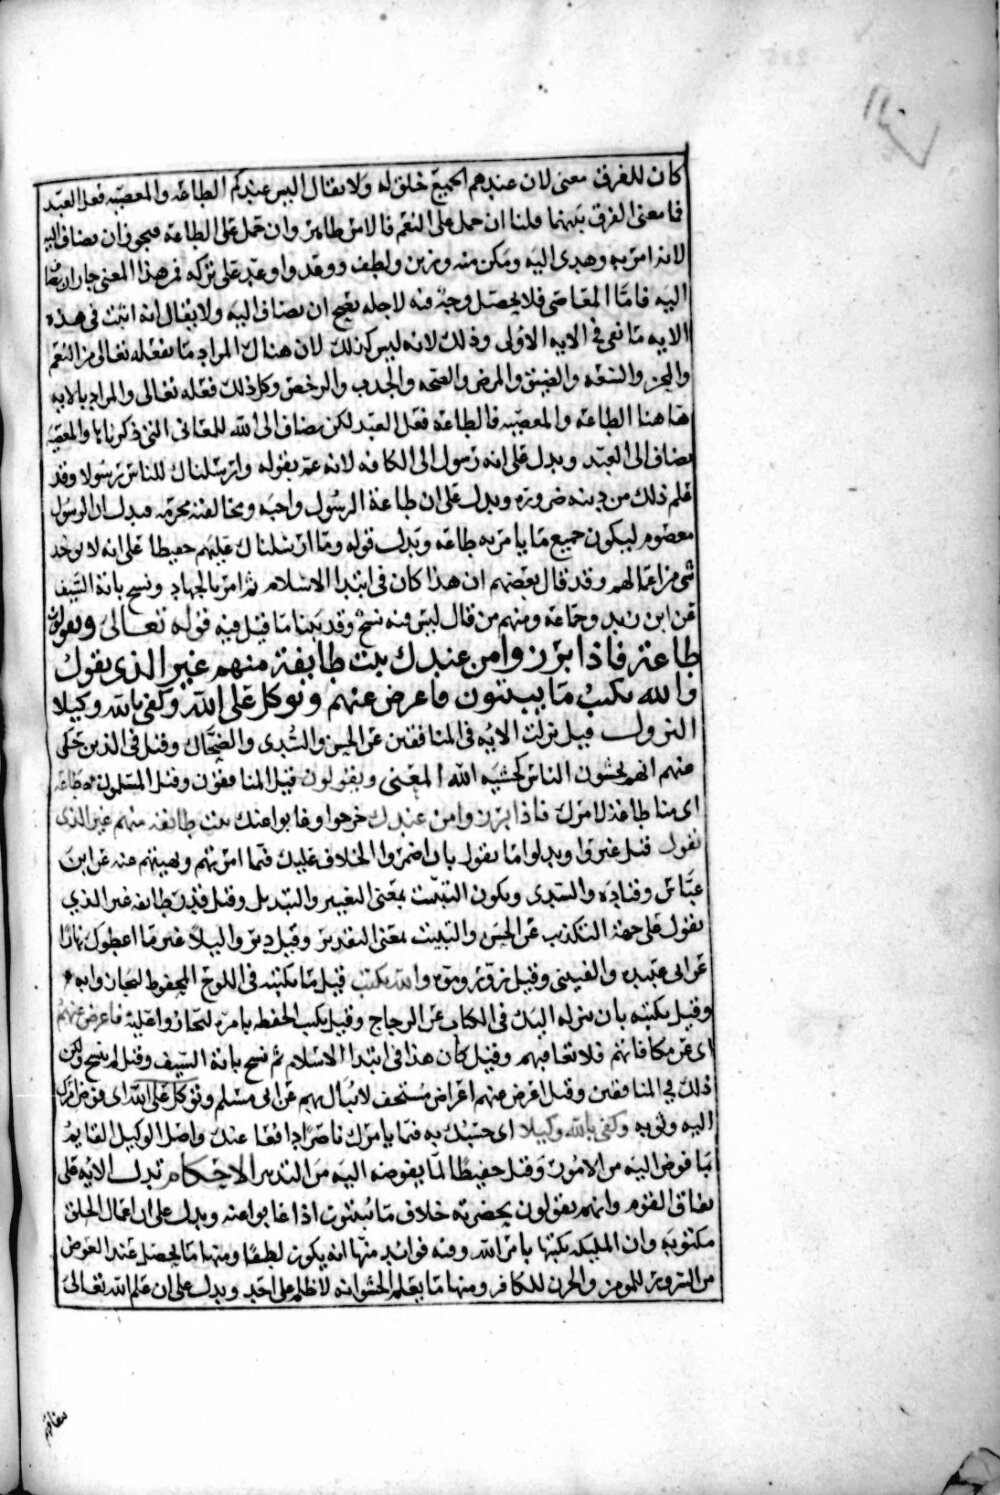 كان للفرق معنى لان عندهم الجميع خلق له ولا يقال اليس عندكم الطاعة والمعصية فعل العبد
فما معنى الفرق بينهما قلنا ان حمل على النعم فالامر ظاهر وان حمل على الطاعة فيجوز ان يضاف اليه
لانه امر به وهدى اليه ومكن منه وزين ولطف ووعد واوعد على تركه فمن هذا المعنى جاز ان يضاف
اليه فاما المعاصي فلا يحصل وجه منه لاجله يصح ان يضاف اليه ولا يقال انه اثبت في هذه
الاية ما نفى في الاية الاولى وذلك لانه ليس كذلك لان هناك المراد ما يفعله تعالى من النعم
والمحن والسعة والضيق والمرض والصحة والجدب والرخص وكل ذلك فعله تعالى والمراد بالاية
هاهنا الطاعة والمعصية فالطاعة فعل العبد لكن يضاف الى الله للمعاني التي ذكرناها والمعصية
يضاف الى العبد ويدل على انه رسول الى الكافة لانه عم بقوله وارسلناك للناس رسولا وقد
علم ذلك من دينه ضرورة ويدل على ان طاعة الرسول واجبة ومخالفته محرمة فيدل ان الرسول
معصوم ليكون جميع ما يامر به طاعة ويدل قوله وما ارسلناك عليهم حفيظا على انه لا يوخذ
بشي من اعمالهم وقد قال بعضهم ان هذا كان في ابتدا الاسلام ثم امر بالجهاد ونسخ باية السيف
عن ابن زيد وجماعة ومنهم من قال ليس فيه نسخ وقد بينا ما قيل فيه قوله تعالى ويقولون
طاعة فاذا برزوا من عندك بيت طايفة منهم غير الذي يقول
والله يكتب ما يبيتون فاعرض عنهم وتوكل على الله وكفى بالله وكيلا
النزول قيل نزلت الاية في المنافقين عن الحسن والسدي والضحاك وقيل في الذين حكى
عنهم انهم يخشون الناس كخشية الله المعنى ويقولون قيل المنافقون وقيل المسلمون طاعة
اي منا طاعة لامرك فاذا برزوا من عندك خرجوا وغابوا عنك بيت طايفة منهم غير الذي
تقول قيل غيروا وبدلوا ما تقول بان اضمروا الخلاف عليك فيما امرتهم ونهيتهم عنه عن ابن
عباس وقتادة والسدي ويكون التبييت بمعنى التغيير والتبديل وقيل قدر طايفة غير الذي
تقول على جهة التكذيب عن الحسن والتبييت بمعنى التقدير وقيل دبر واليلا غير ما اعطوك نهارا
عن ابي عبيدة والقتيبي وقيل زوروا وموه والله يكتب قيل ما يكتبه في اللوح المحفوظ ليجازوا به
وقيل يكتبه بان ينزله اليك في الكتاب عن الزجاج وقيل يكتب الحفظة بامره ليجازوا عليه فاعرض عنهم
اي عن مكافاتهم فلا تعاقبهم وقيل كان هذا في ابتدا الاسلام ثم نسخ باية السيف وقيل لم ينسخ ولكن
ذلك في المنافقين وقيل اعرض عنهم اعراض مستخف لا يبال بهم عن ابي مسلم وتوكل على الله اي فوض امرك
اليه وثق به وكفى بالله وكيلا اي حسبك به فيما يامرك ناصرا دافعا عنك واصل الوكيل القايم
بما فوض اليه من الامور وقيل حفيظا لما يفوضه اليه من التدبير الاحكام تدل الاية على
نفاق القوم وانهم يقولون بحضرته خلاف ما يبيتون اذا غابوا عنه ويدل على ان اعمال الخلق
مكتوبة وان الملائكة يكتبها بامر الله وفيه فوائد منها انه يكون لطفا ومنها ما يحصل عند العرض
من السرور للمومن والحزن للكافر ومنها ما يعلم الحشر انه لا ظلم على احد ويدل على ان علم الله تعالى